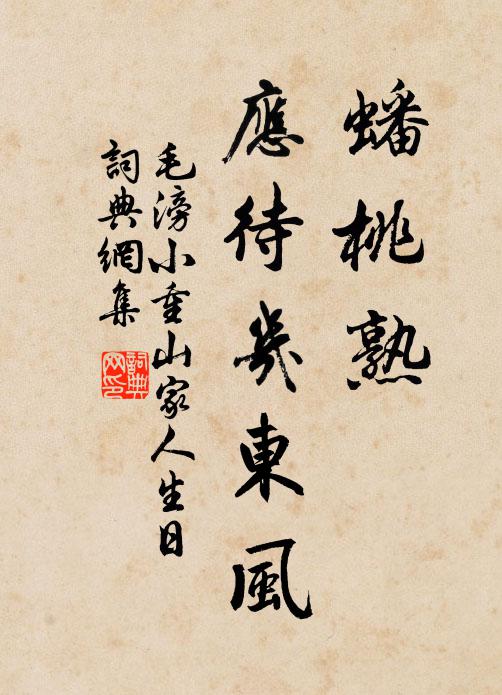 蟠桃熟
應待幾東風
毛滂小重山家人生日
詞典網集
詞典網印